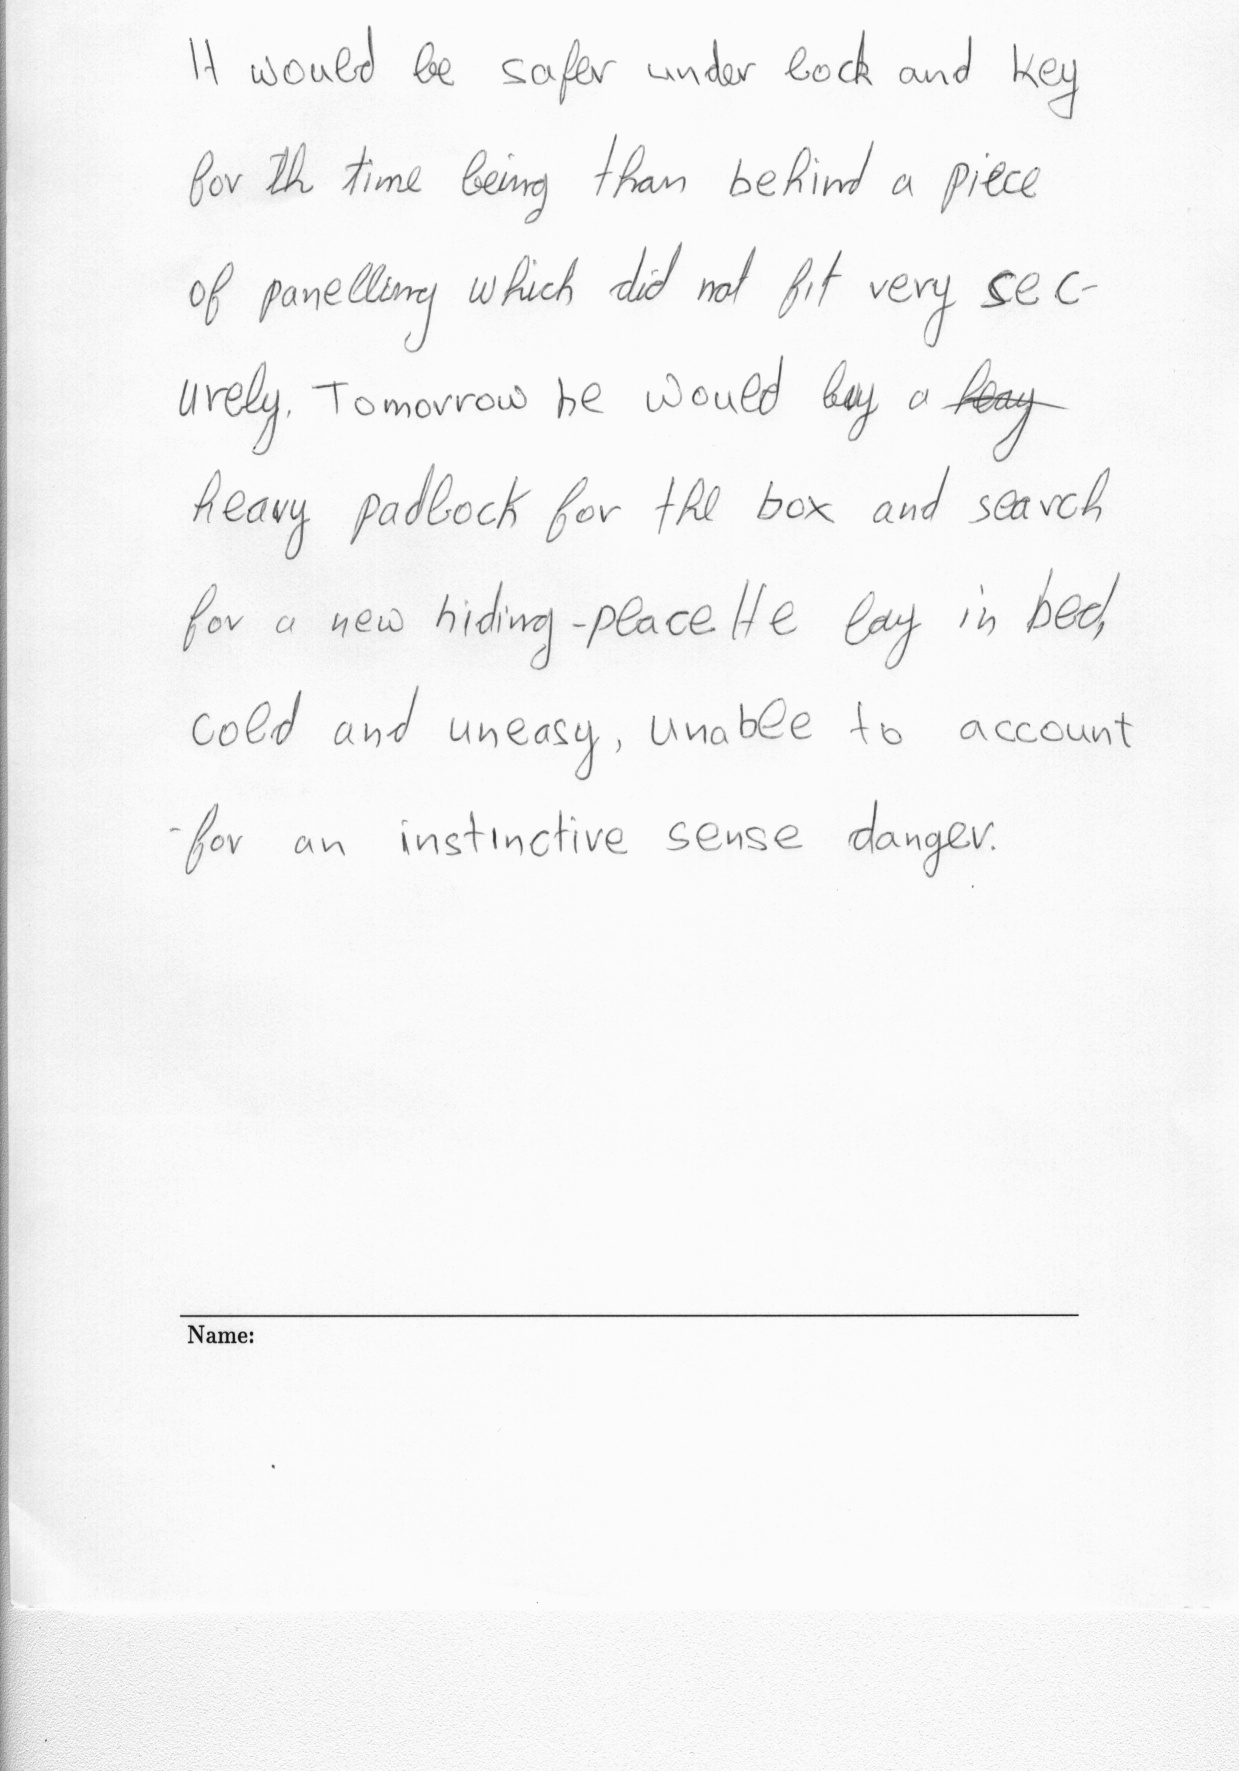 It would be safer under lock and key
for th time being than behind a piece
of panelling which did not fit very sec-
urely. Tomorrow he would buy a
heavy padlock for the box and search
for a new hiding-place. He lay in bed,
cold and uneasy, unable to account
for an instinctive sense danger.
Name: